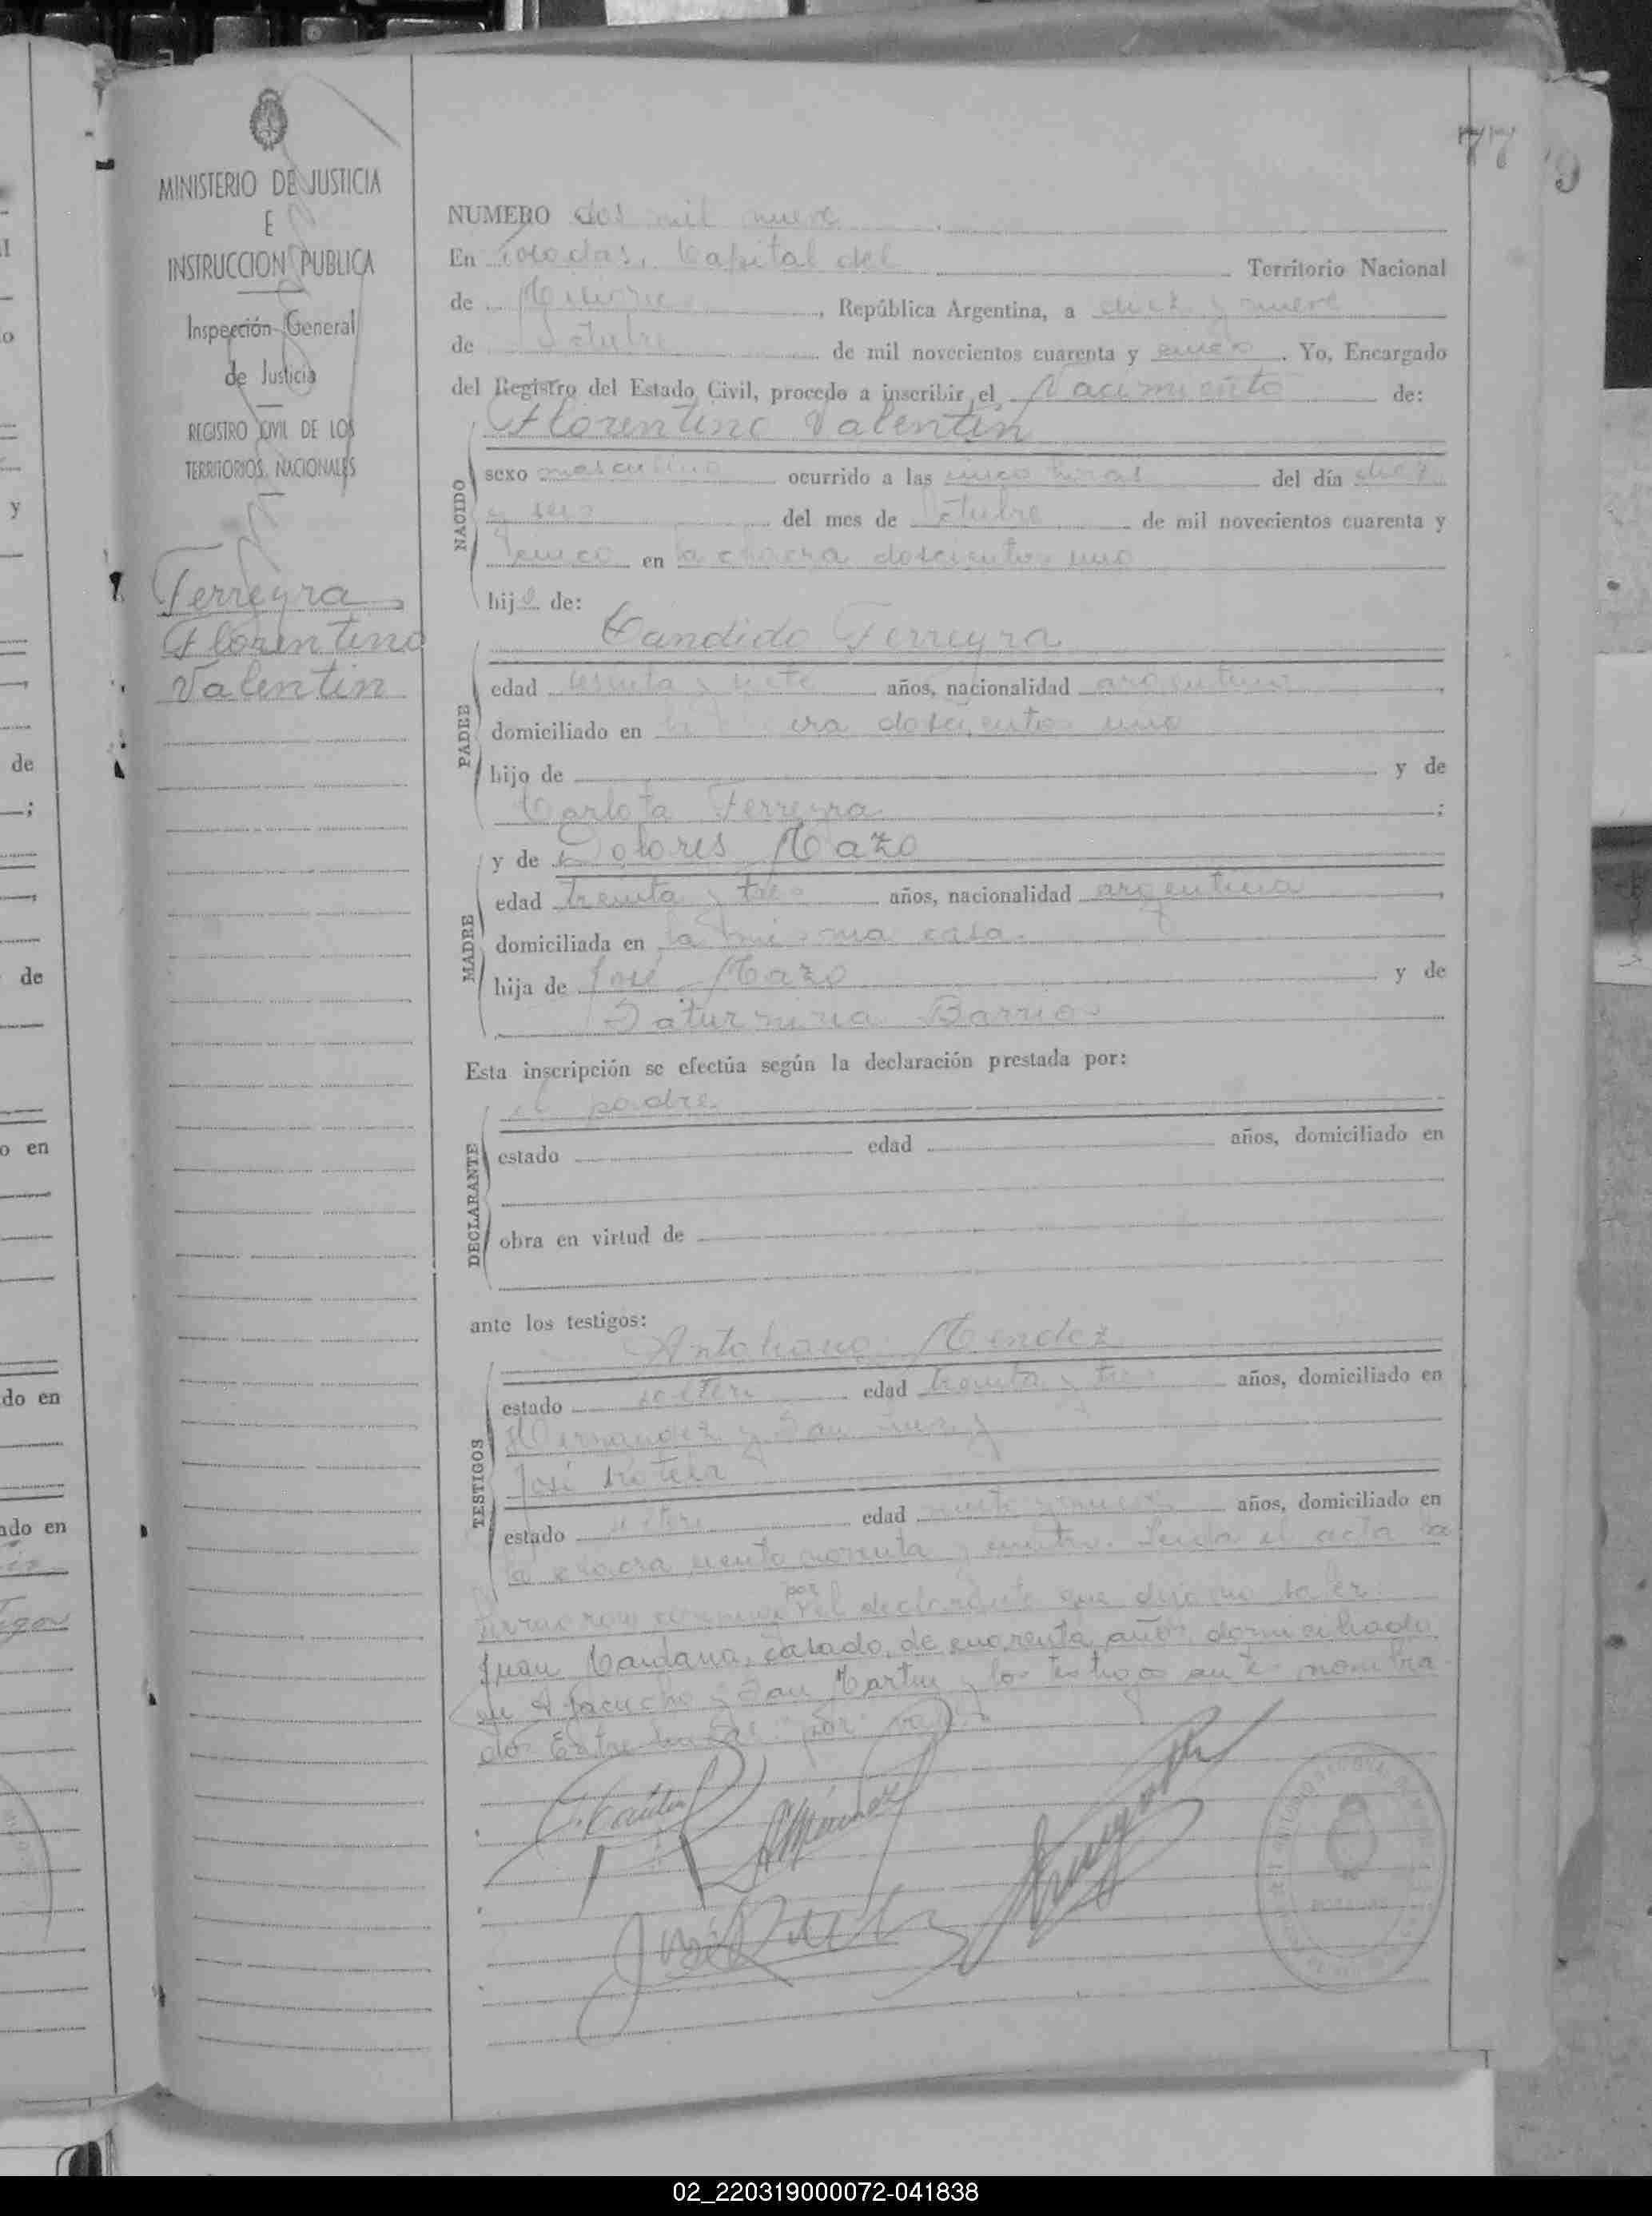 77
9
MINISTERIO DE JUSTICIA
E
INSTRUCCION PUBLICA
Inspección General
de Justicia
REGISTRO CIVIL DE LOS
TERRITORIOS NACIONALES
Ferreyra
Florentino
Valentin
NUMERO dos mil nueve
En Posadas, Capital del Territorio Nacional
de Misiones, República Argentina, a diez y nueve
de Octubre de mil novecientos cuarenta y cinco. Yo, Encargado
del Registro del Estado Civil, procedo a inscribir el Nacimiento de:
Florentino Valentin
NACIDO
sexo masculino ocurrido a las cinco horas del día diez
y seis del mes de Octubre de mil novecientos cuarenta y
cinco en la chacra doscientos uno
hijo de:
Candido Ferreyra
PADRE
edad y siete años, nacionalidad argentina,
domiciliado en la chacra doscientos uno
hijo de y de
Carlota Ferreyra;
y de Dolores Mazo
MADRE
edad treinta y tres años, nacionalidad argentina,
domiciliada en la misma casa.
hija de José Mazo y de
Saturnina Barrios
Esta inscripción se efectúa según la declaración prestada por:
el padre
DECLARANTE
estado edad años, domiciliado en
obra en virtud de
ante los testigos:
Mendez
TESTIGOS
estado soltero edad treinta y tres años, domiciliado en
Hernandez y San
José Rotela
estado soltero edad años, domiciliado en
la chacra ciento noventa y cuatro. Leida el acta la
por
el declarante que dijo no saber
Juan casado, de cuarenta años, domiciliado
en Ayacucho y San Martin y los testigos antes nombra-
dos Entre lineas: por: vale
José Rotela
POSADAS
y
de
de
o en
do en
ado en
02_220319000072-041838